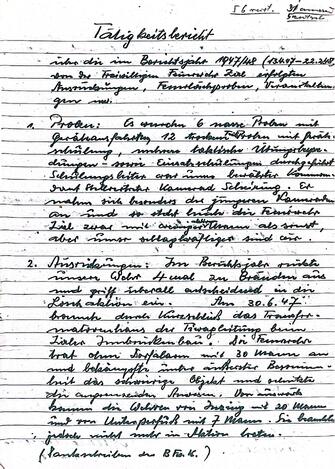 56 mst. 31 innen
Tätigkeitsbericht
über die im Berichtsjahr 1947/48 (13.4.47 - 22.2.48)
von der Freiwilligen Feuerwehr Zirl erfolgten
Ausrückungen, Feuerlöschproben, Veranstaltun-
gen usw.
1. Proben: Es wurden 6 nasse Proben mit
Gerätausfahrten 12 trockene Proben mit
schulung, mehrere taktische Übungsbespre-
chungen - sowie Einsatzschulungen durchgeführt
Schulungsleiter war unser bewährter Komman-
dant Kamerad Er
nahm sich besonders der jüngeren Kameraden
an und so steht heute die Feuerwehr
Zirl zwar mit weniger Mann als sonst,
aber umso schlagkräftiger und da.
2. Ausrückungen: Im Berichtsjahr rückte
unsere Wehr 4 mal zu Bränden aus
und griff überall entscheidend in die
Löschaktion ein. Am 30.6.47
brannte durch Kurzschluß das Transfor-
matorenhaus der Tiwagleitung beim
Zirler Innbrückenbau. Die Feuerwehr
trat ohne Dorfalarm mit 30 Mann an
und bekämpfte unter äußerster Besonnen-
heit das schwierige Objekt und schützte
die angrenzenden Anwesen. Von auswärts
kamen die Wehren von Inzing mit 20 Mann
und von Unterperfuß mit 7 Mann. Sie brauchten
jedoch nicht mehr in Aktion treten.
(Dankschreiben des B Fw. K.)